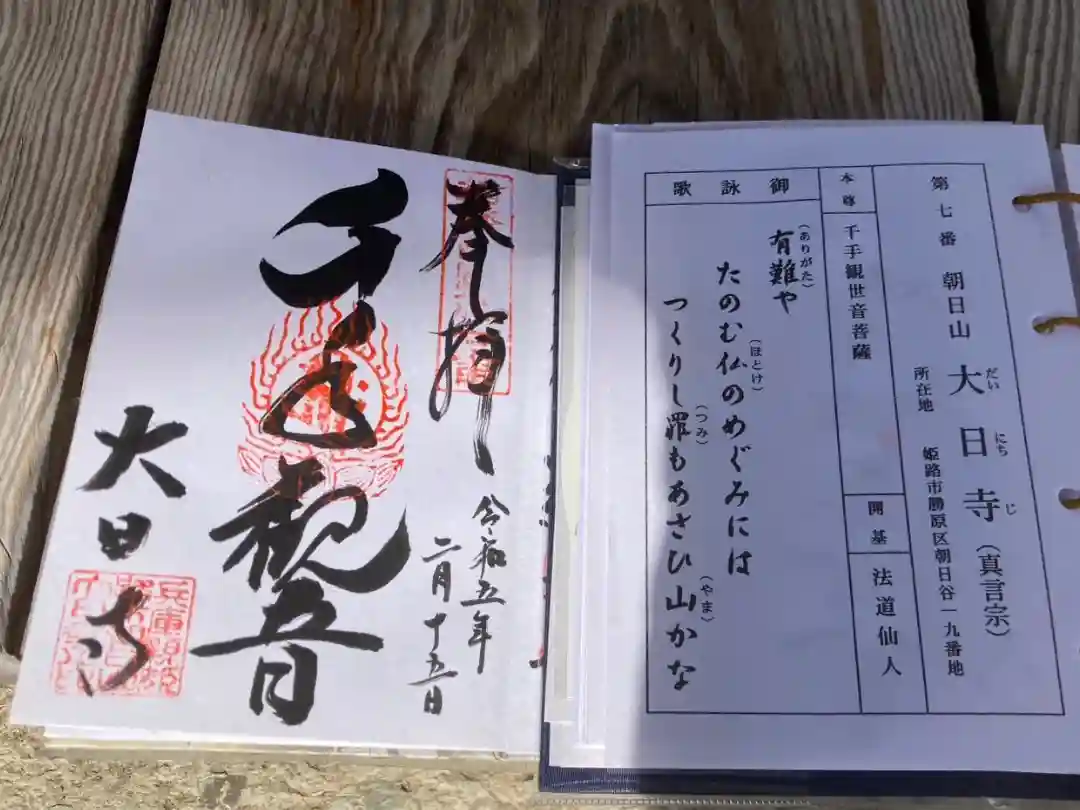 奉拝
令和五年
二月十五日
千手観音
大日寺
第七番 朝日山 大日寺(真言宗)
だいにちじ
所在地 姫路市勝原区朝日谷一九番地
本尊 千手観世音菩薩
開基 法道仙人
御詠歌
有難や
(ありがた)
たのむ仏のめぐみには
(ほとけ)
つくりし罪もあさひ山かな
(つみ)
(やま)